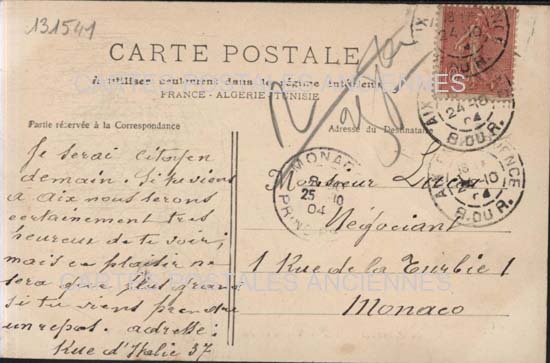 131541
CARTE POSTALE
A utiliser seulement dans le régime intérieur
FRANCE - ALGÉRIE - TUNISIE
Partie réservée à la Correspondance
Adresse du Destinataire
Je serai citoyen
demain. Si tu viens
à Aix nous serons
certainement très
heureux de te voir;
mais ce plaisir ne
sera que plus grand
si tu viens prendre
un repas. adresse:
Rue d'Italie 37
Monsieur
Négociant
1 Rue de la Turbie 1
Monaco
MONACO
25 10
04
AIX EN PROVENCE
24-10
04
B. DU R.
AIX EN PROVENCE
24-10
04
B. DU R.
CARTES POSTALES ANCIENNES
CARTES POSTALES ANCIENNES